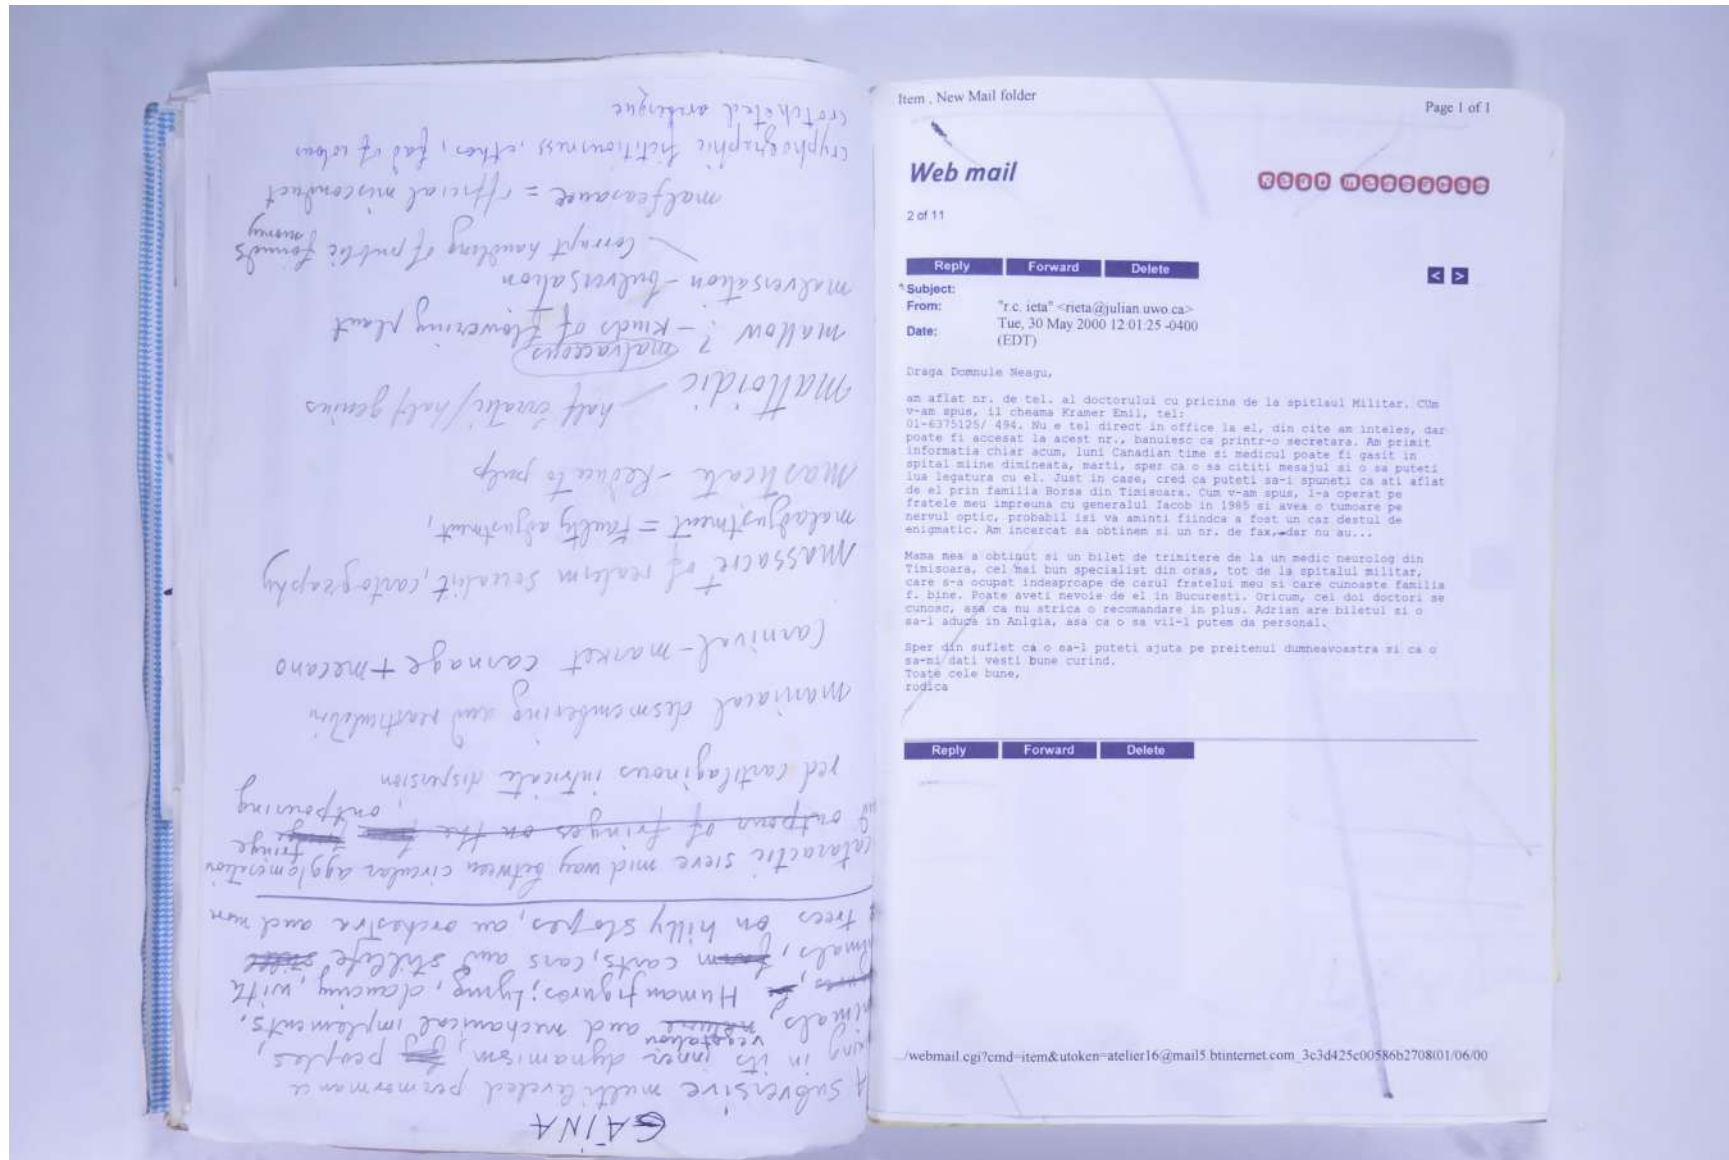 GAINA
A subversive multileveled permormance
in its inner dynamism, peoples,
vegetation
animals, nature and mechanical implements.
Human figures; Lying, dancing, with
carts, cars and stillife
trees on hilly slopes, an orchestra and nun
cataractic sieve mid way between circular agglomeration
fringe
outpour of fringes on the
outpouring
red cartilaginous intricate dispersion
maniacal desmembering and reastitution
Carnival-market carnage + mecano
Massacre
of realism socialist, cartography
maladjustment = Faulty adjustment,
Masticate - Reduce to pulp
Mattoidic - half erratic/half genius
malvaceous
mallow ? - kinds of flowering plant
malversation - bulversation
Corrupt handling of public funds
money
malfeasance = official misconduct
cryptographic fictitiousness, ethos, fad of
crotcheted arabesque
Item . New Mail folder
Page 1 of 1
Web mail
2 of 11
Reply Forward Delete
< >
Subject:
From: "r.c. ieta" <rieta@julian.uwo.ca>
Date: Tue, 30 May 2000 12:01:25 -0400
(EDT)
Draga Domnule Neagu,
am aflat nr. de tel. al doctorului cu pricina de la spitlaul Militar. CUm
v-am spus, il cheama Kramer Emil, tel:
01-6375125/ 494. Nu e tel direct in office la el, din cite am inteles, dar
poate fi accesat la acest nr., banuiesc ca printr-o secretara. Am primit
informatia chiar acum, luni Canadian time si medicul poate fi gasit in
spital miine dimineata, marti, sper ca o sa cititi mesajul si o sa puteti
lua legatura cu el. Just in case, cred ca puteti sa-i spuneti ca ati aflat
de el prin familia Borsa din Timisoara. Cum v-am spus, l-a operat pe
fratele meu impreuna cu generalul Iacob in 1985 si avea o tumoare pe
nervul optic, probabil isi va aminti fiindca a fost un caz destul de
enigmatic. Am incercat sa obtinem si un nr. de fax, dar nu au...
Mama mea a obtinut si un bilet de trimitere de la un medic neurolog din
Timisoara, cel mai bun specialist din oras, tot de la spitalul militar,
care s-a ocupat indeaproape de cazul fratelui meu si care cunoaste familia
f. bine. Poate aveti nevoie de el in Bucuresti. Oricum, cei doi doctori se
cunosc, asa ca nu strica o recomandare in plus. Adrian are biletul si o
sa-l aduca in Anlgia, asa ca o sa vii-l putem da personal.
Sper din suflet ca o sa-l puteti ajuta pe preitenul dumneavoastra si ca o
sa-mi dati vesti bune curind.
Toate cele bune,
rodica
Reply Forward Delete
/webmail.cgi?cmd=item&utoken=atelier16@mail5.btinternet.com_3c3d425c00586b2708(01/06/00